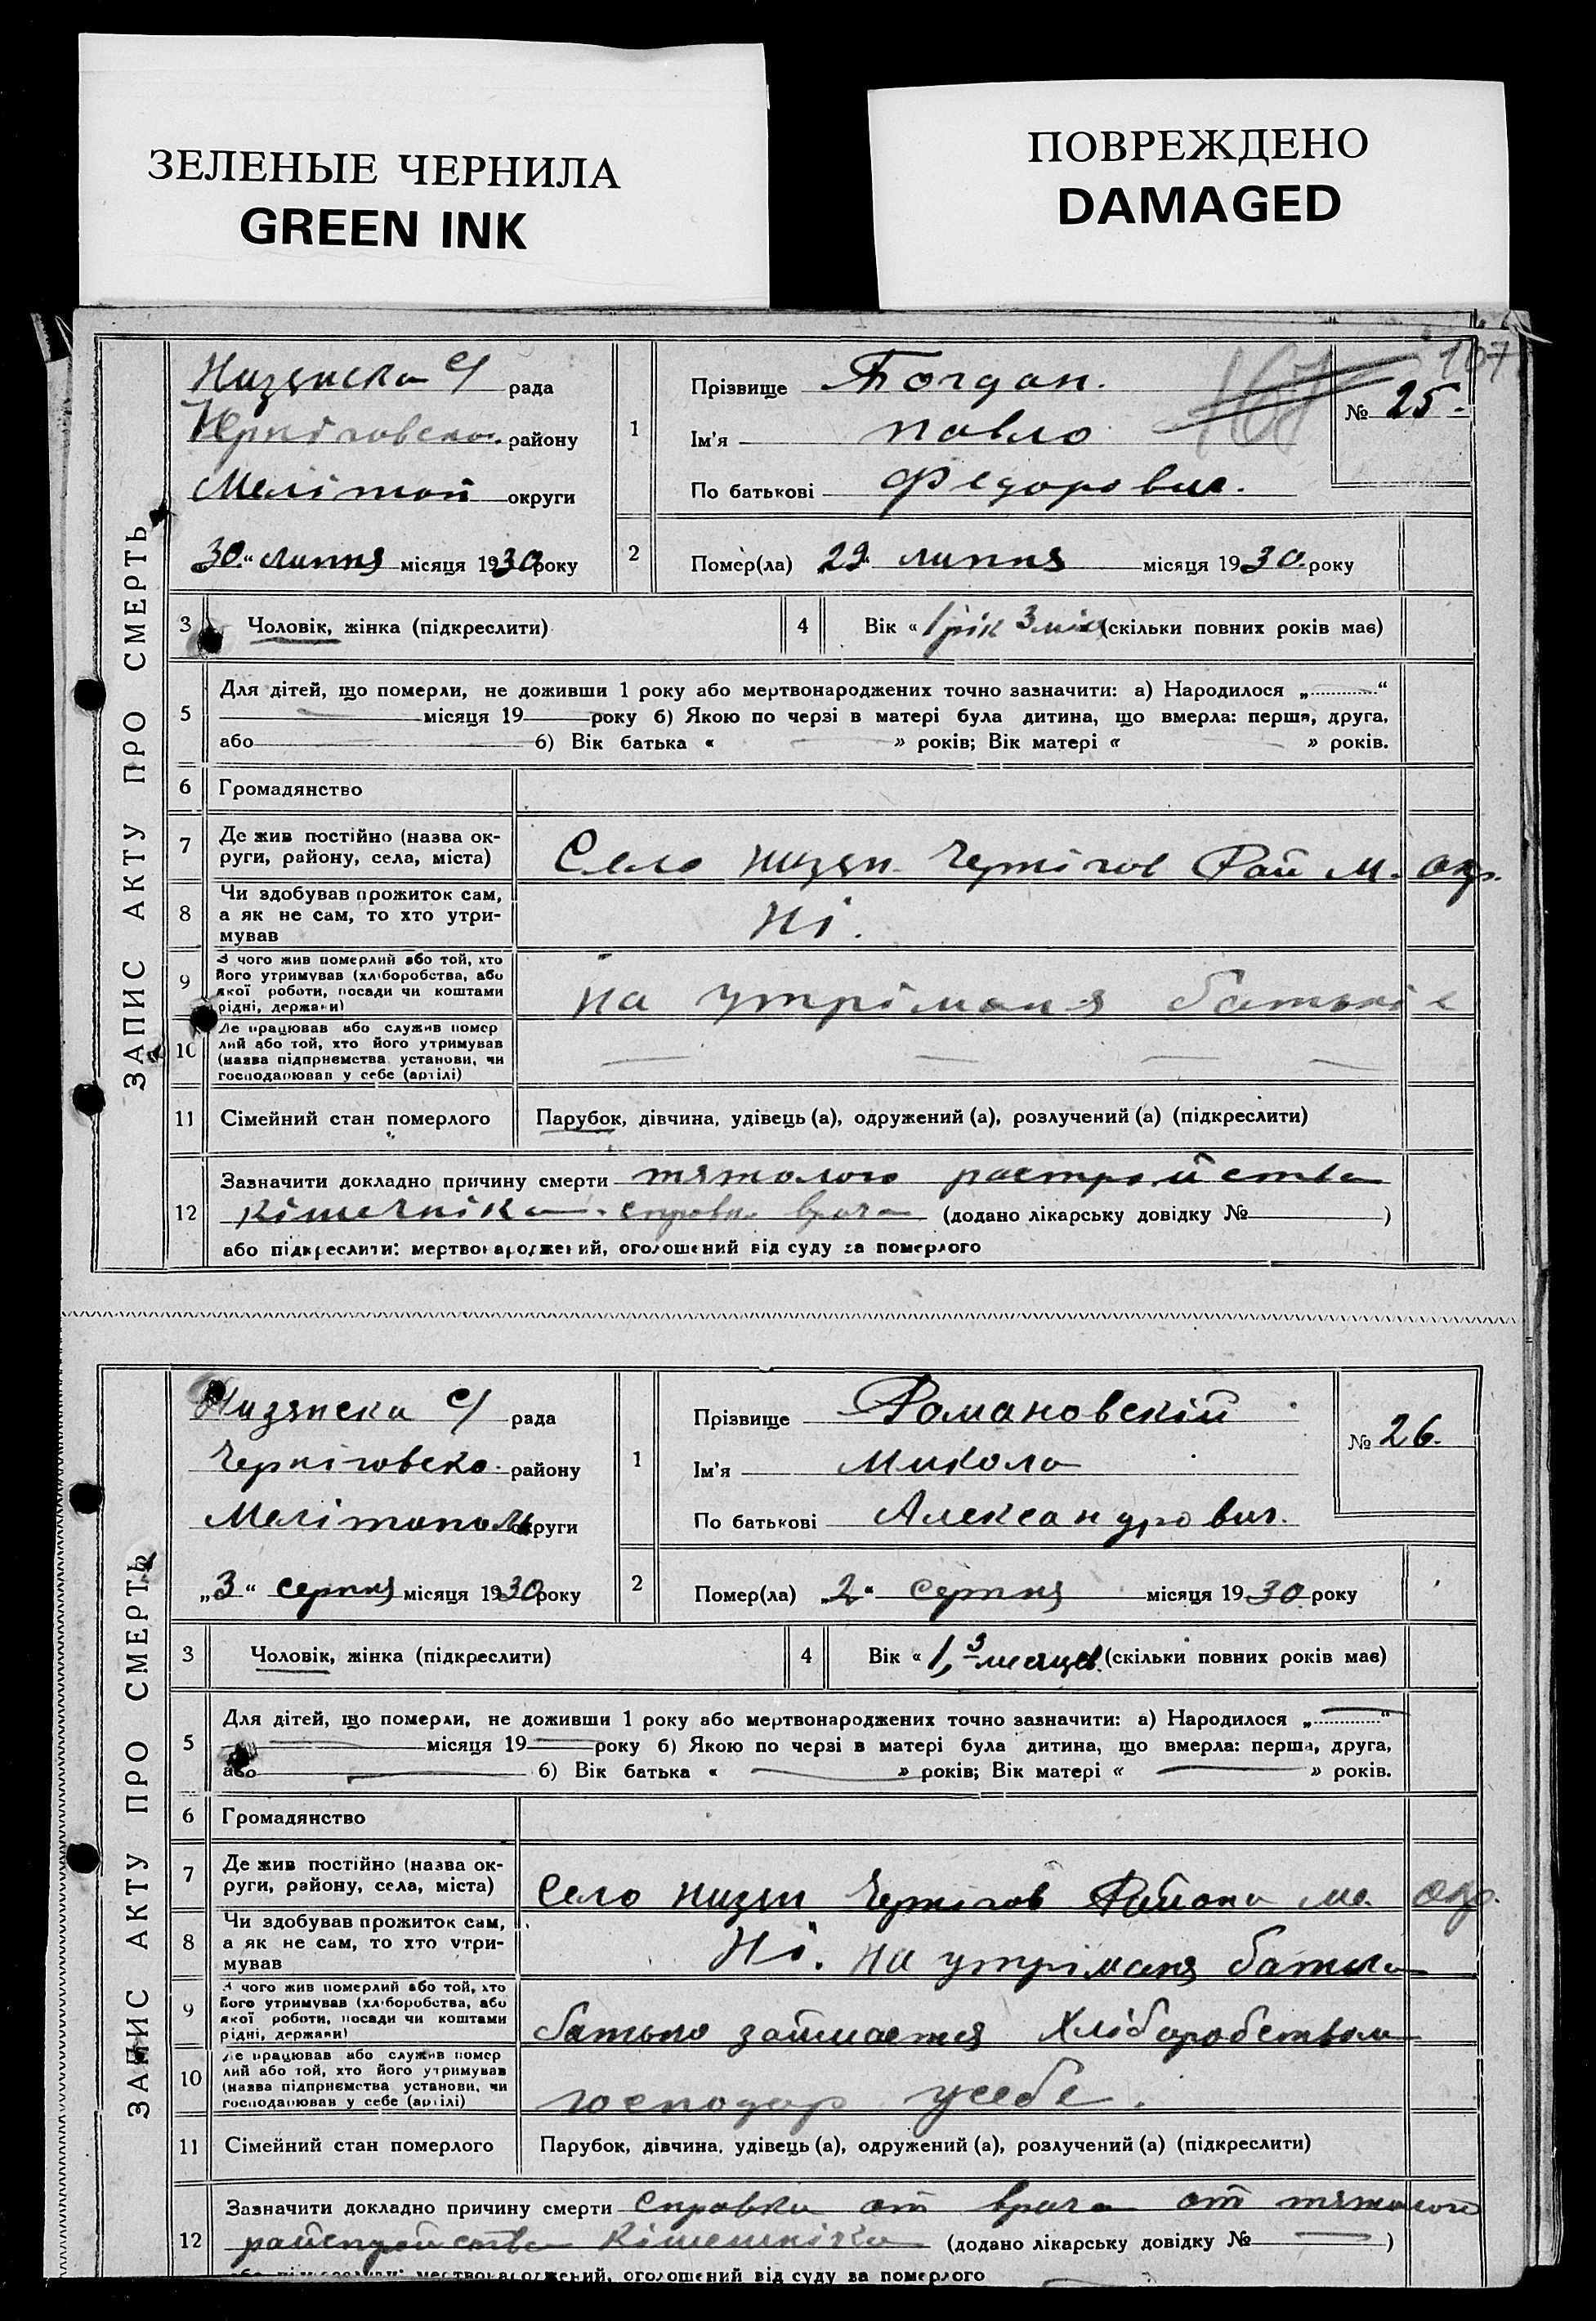 ЗЕЛЕНЫЕ ЧЕРНИЛА
GREEN INK
ПОВРЕЖДЕНО
DAMAGED
107
167
ЗАПИС АКТУ ПРО СМЕРТЬ
Низянска с/ рада
Чернiговско. району
Мелiтоп округи
„30“ липня місяця 1930 року
1
Прізвище Богдан.
Ім'я Павло
По батькові Федорович.
№ 25.
2
Помер(ла) „29“ липня місяця 1930 року
3 Чоловік, жінка (підкреслити)
4 Вік « 1 рік 3 міс (скільки повних років має)
5 Для дітей, що померли, не доживши 1 року або мертвонароджених точно зазначити: а) Народилося „ “
місяця 19 року б) Якою по черзі в матері була дитина, що вмерла: перша, друга,
або б) Вік батька « » років; Вік матері « » років.
6 Громадянство
7 Де жив постійно (назва ок-
руги, району, села, міста)
Село Низян. Чернiгов Рай М. окр.
8 Чи здобував прожиток сам,
а як не сам, то хто утри-
мував
Ні.
9 З чого жив померлий або той, хто
його утримував (хліборобства, або
якої роботи, посади чи коштами
рідні, держави)
на утріманя батькiв
10 Де працював або служив помер
лий або той, хто його утримував
(назва підприємства установи, чи
господарював у себе (артілі)
11 Сімейний стан померлого
Парубок, дівчина, удівець (а), одружений (а), розлучений (а) (підкреслити)
12 Зазначити докладно причину смерти тяжолого растройства
кiшечнiка. справка врача (додано лікарську довідку № )
або підкреслити: мертвонароджений, оголошений від суду за померлого
ЗАПИС АКТУ ПРО СМЕРТЬ
Низянска с/ рада
Чернiговско. району
Мелiтополь округи
„3“ серпня місяця 1930 року
1
Прізвище Романовскiй
Ім'я Микола
По батькові Александрович.
№ 26.
2
Помер(ла) „2“ серпня місяця 1930 року
3 Чоловік, жінка (підкреслити)
4 Вік « 1, 3 месяцев. (скільки повних років має)
5 Для дітей, що померли, не доживши 1 року або мертвонароджених точно зазначити: а) Народилося „ “
місяця 19 року б) Якою по черзі в матері була дитина, що вмерла: перша, друга,
або б) Вік батька « » років; Вік матері « » років.
6 Громадянство
7 Де жив постійно (назва ок-
руги, району, села, міста)
Село Низян Чернiгов Района Ме. окр.
8 Чи здобував прожиток сам,
а як не сам, то хто утри-
мував
Ні. на утріманя батька
9 З чого жив померлий або той, хто
його утримував (хліборобства, або
якої роботи, посади чи коштами
рідні, держави)
батько займается Хлiборобством
10 Де працював або служив помер
лий або той, хто його утримував
(назва підприємства установи, чи
господарював у себе (артілі)
господар усебе.
11 Сімейний стан померлого
Парубок, дівчина, удівець (а), одружений (а), розлучений (а) (підкреслити)
12 Зазначити докладно причину смерти Справка от врача от тяжолого
кiшешнiка (додано лікарську довідку № )
або підкреслити: мертвонароджений, оголошений від суду за померлого